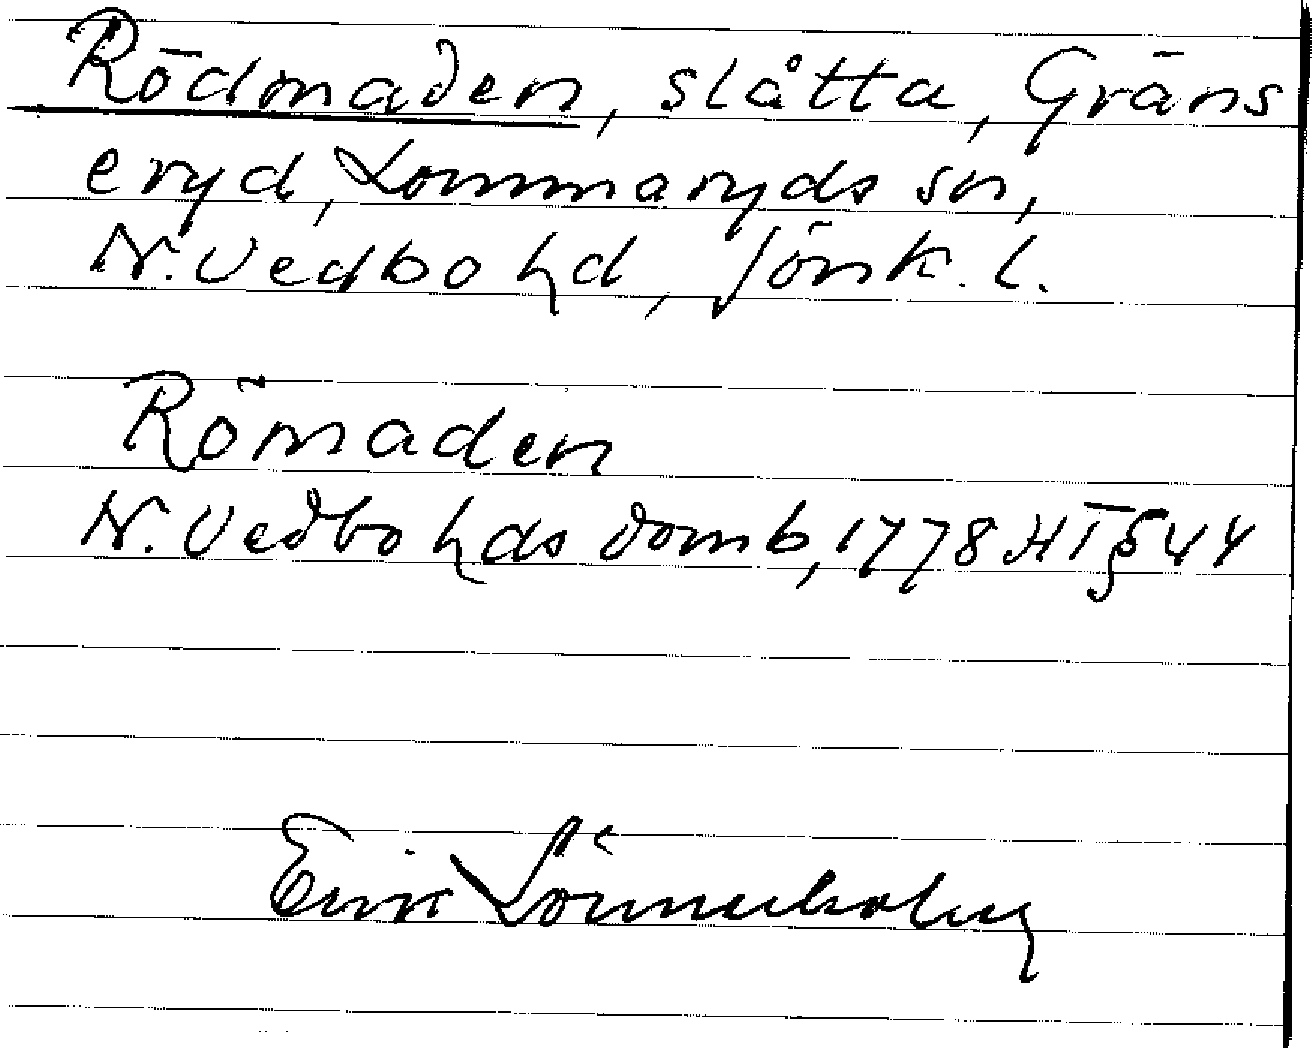 Rödmaden, slåtta, Gräns
eryd, Lommaryds sn,
N. Vedbo hd, Jönk. l.
Römaden
N. Vedbo hds domb, 1778 HT § 44
Erik Lönnerholm